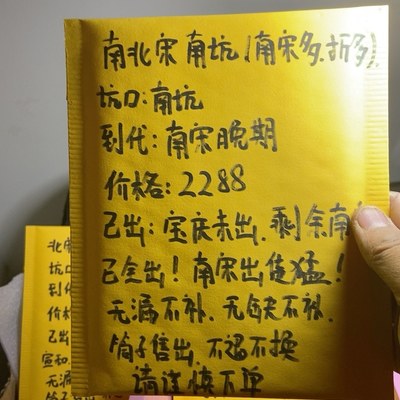 南北宋南坑（南宋多.折多）
坑口:南坑
到代:南宋晚期
价格:2288
已出:宝庆未出.剩余南
已全出！南宋出货猛！
无漏不补.无缺不补.
筒子售出.不退不换
请谨慎下单
北
坑口
到代
价格
已出
宣和
无漏
筒子售